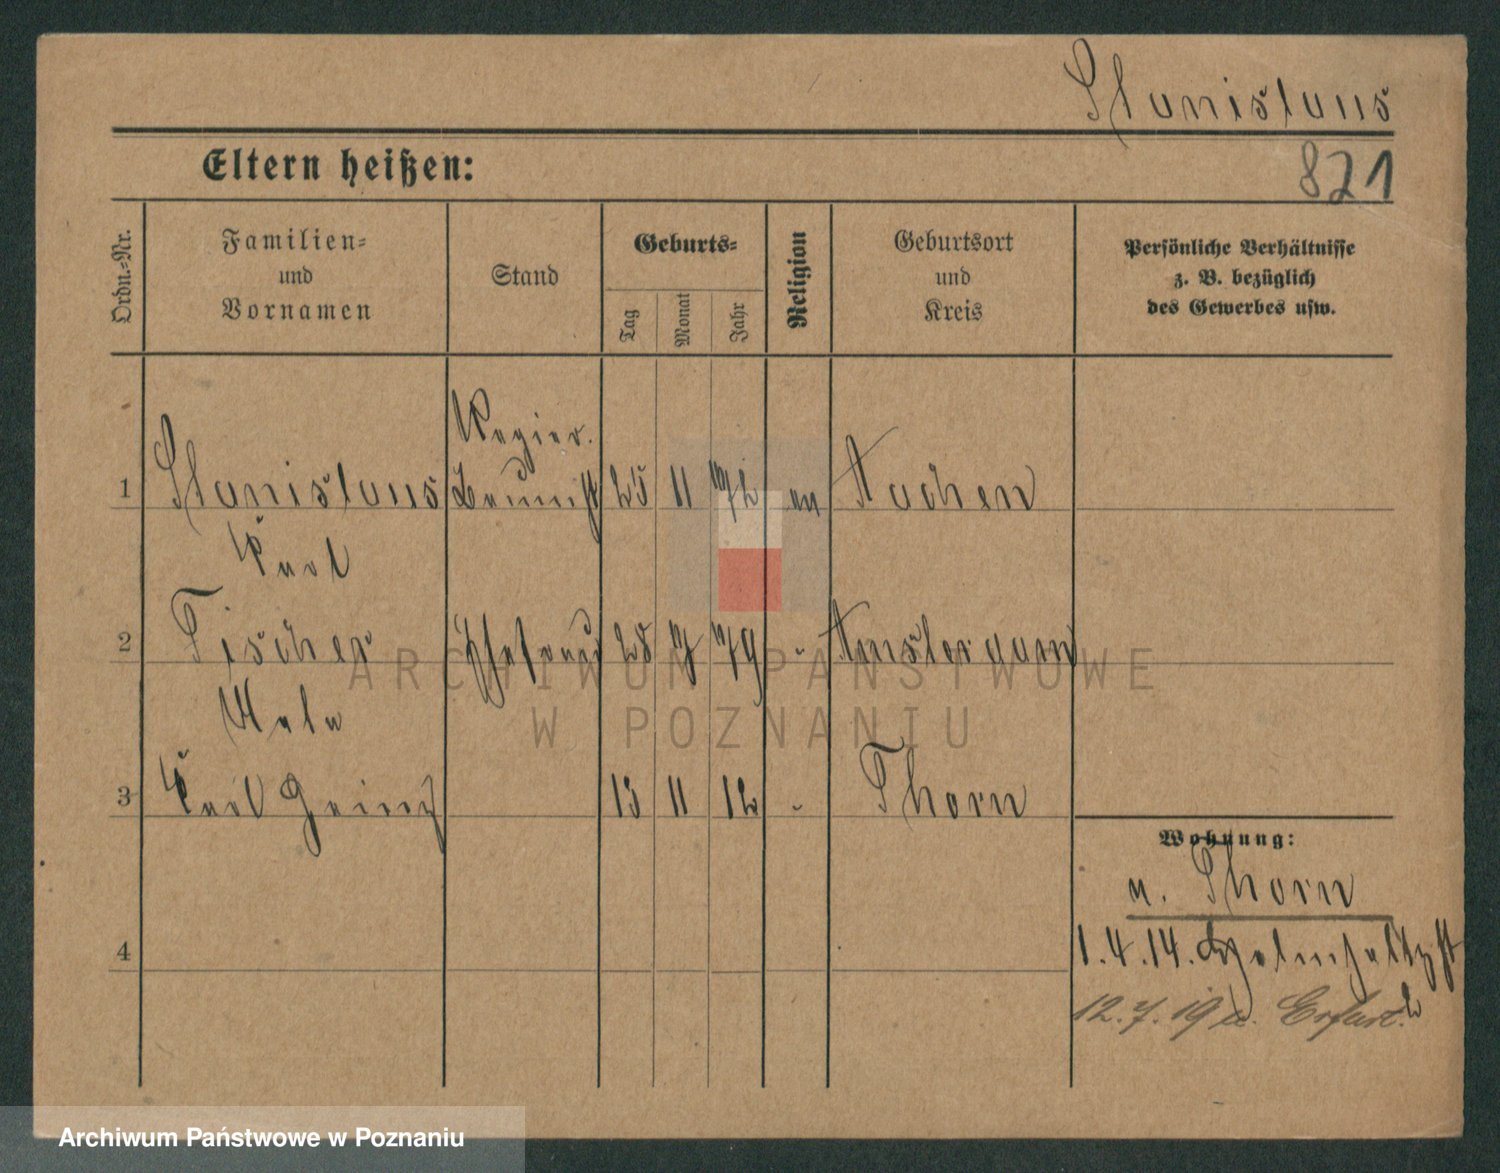 Stanislaus
821
Eltern heißen:
Ordn.-Nr.
Familien-
und
Vornamen
Stand
Geburts-
Tag
Monat
Jahr
Religion
Geburtsort
und
Kreis
Persönliche Verhältnisse
z. B. bezüglich
des Gewerbes usw.
Regier.
1 Stanislaus 25 11 72 Aachen
Karl
2 Tischer Ehefrau 28 79 " Amsterdam
3 Karl Heinz 13 11 12 " Thorn
Wohnung:
n. Thorn
4
1.4.14.
12.7.19 Erfurt.
ARCHIWUM PAŃSTWOWE
W POZNANIU
Archiwum Państwowe w Poznaniu